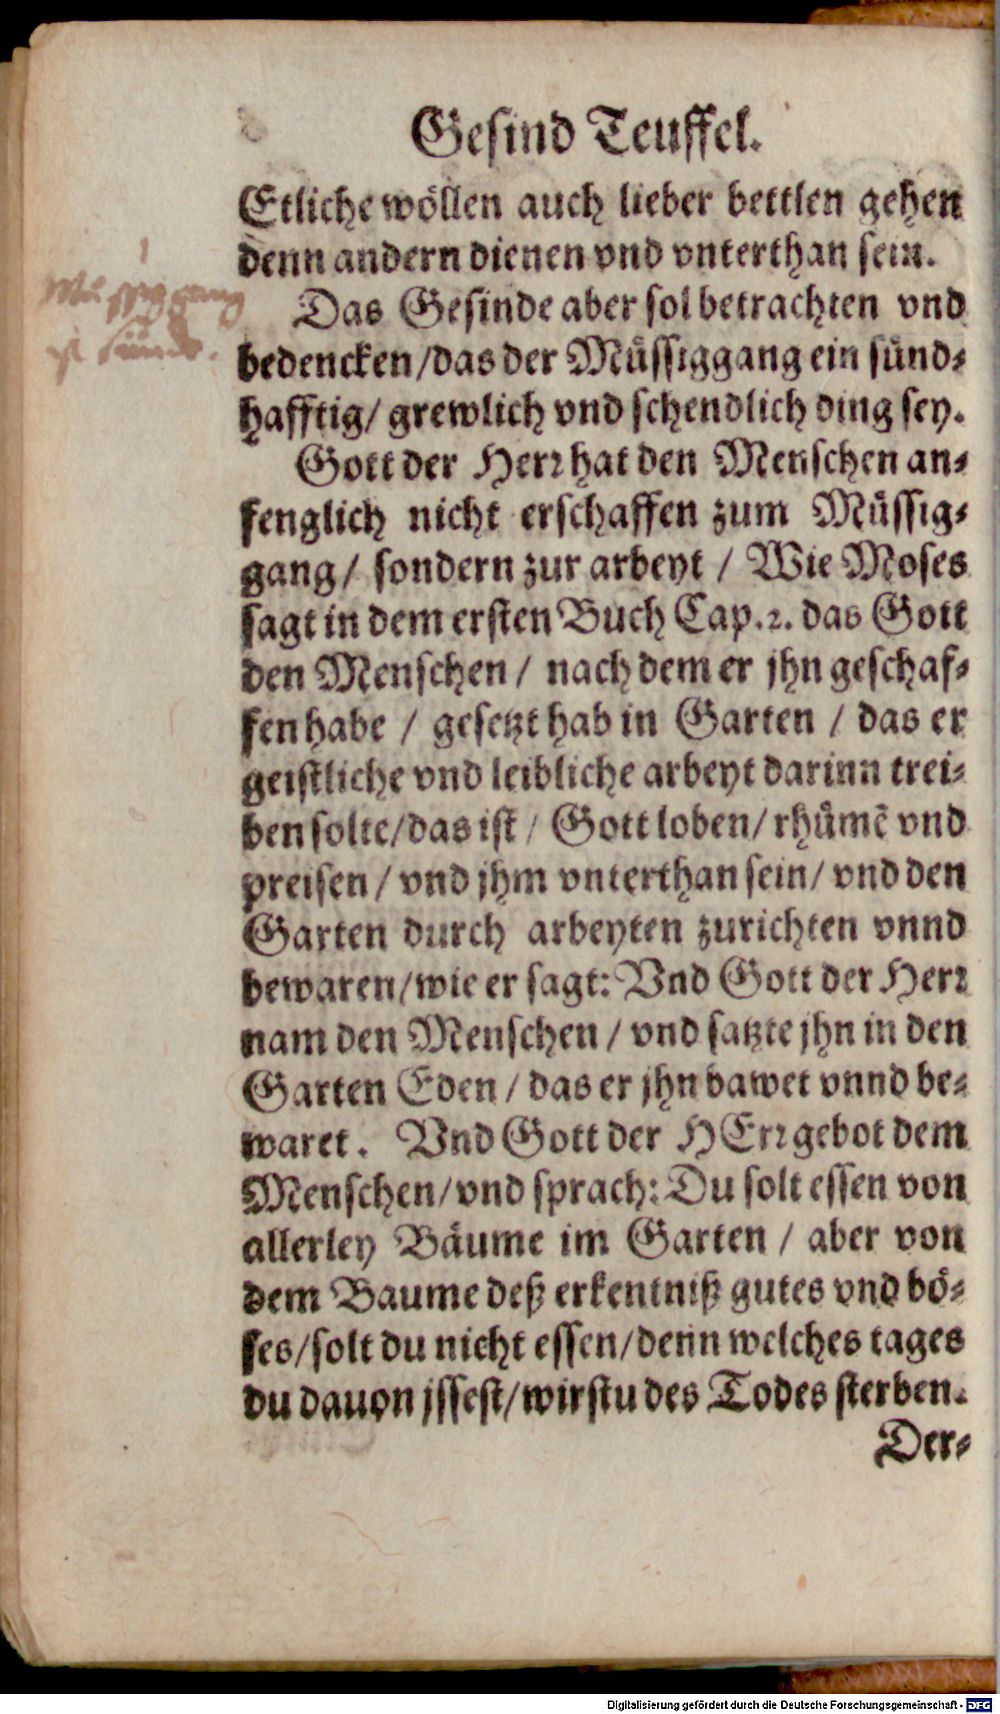 Gesind Teuffel.
Etliche wöllen auch lieber bettlen gehen
denn andern dienen vnd vnterthan sein.
Müssiggang
ist sünde.
Das Gesinde aber sol betrachten vnd
bedencken/das der Müssiggang ein sünd-
hafftig/ grewlich vnd schendlich ding sey.
Gott der Herr hat den Menschen an-
fenglich nicht erschaffen zum Müssig-
gang/ sondern zur arbeyt / Wie Moses
sagt in dem ersten Buch Cap.2. das Gott
den Menschen / nach dem er jhn geschaf-
fen habe / gesetzt hab in Garten / das er
geistliche vnd leibliche arbeyt darinn trei-
ben solte/das ist / Gott loben/ rhümē vnd
preisen / vnd jhm vnterthan sein/ vnd den
Garten durch arbeyten zurichten vnnd
bewaren/wie er sagt: Vnd Gott der Herr
nam den Menschen / vnd satzte jhn in den
Garten Eden / das er jhn bawet vnnd be-
waret. Vnd Gott der HErr gebot dem
Menschen/vnd sprach: Du solt essen von
allerley Bäume im Garten / aber von
dem Baume deß erkentniß gutes vnd bö-
ses/solt du nicht essen/denn welches tages
du dauon jssest/wirstu des Todes sterben.
Der-
Digitalisierung gefördert durch die Deutsche Forschungsgemeinschaft - DFG